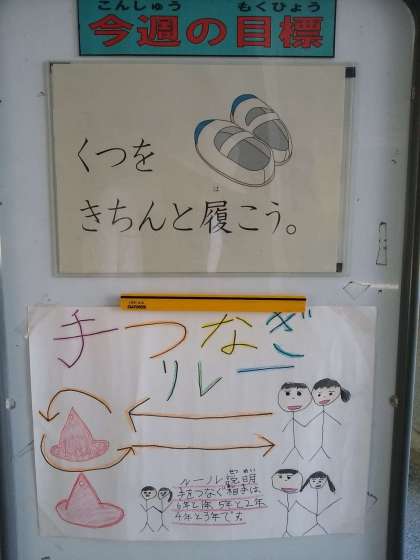 こんしゅう もくひょう
今週の目標
くつを
は
きちんと履こう。
手つなぎ
リレー
せつ めい
ルール説明
手をつなぐ相手は
6年と1年 5年と2年
4年と3年です